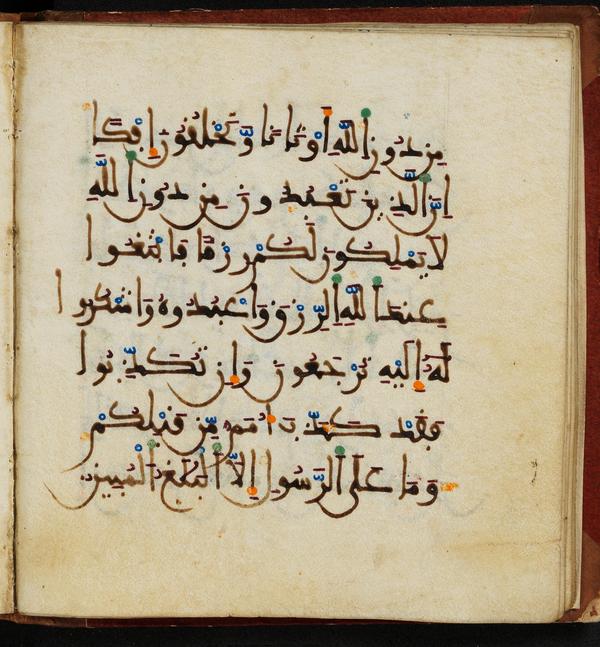 مِن دُونِ اللَّهِ أَوْثَانًا وَتَخْلُقُونَ إِفْكًا
إِنَّ الَّذِينَ تَعْبُدُونَ مِن دُونِ اللَّهِ
لَا يَمْلِكُونَ لَكُمْ رِزْقًا فَابْتَغُوا
عِندَ اللَّهِ الرِّزْقَ وَاعْبُدُوهُ وَاشْكُرُوا
لَهُ إِلَيْهِ تُرْجَعُونَ وَإِن تُكَذِّبُوا
فَقَدْ كَذَّبَ أُمَمٌ مِّن قَبْلِكُمْ
وَمَا عَلَى الرَّسُولِ إِلَّا الْبَلَٰغُ الْمُبِينُ